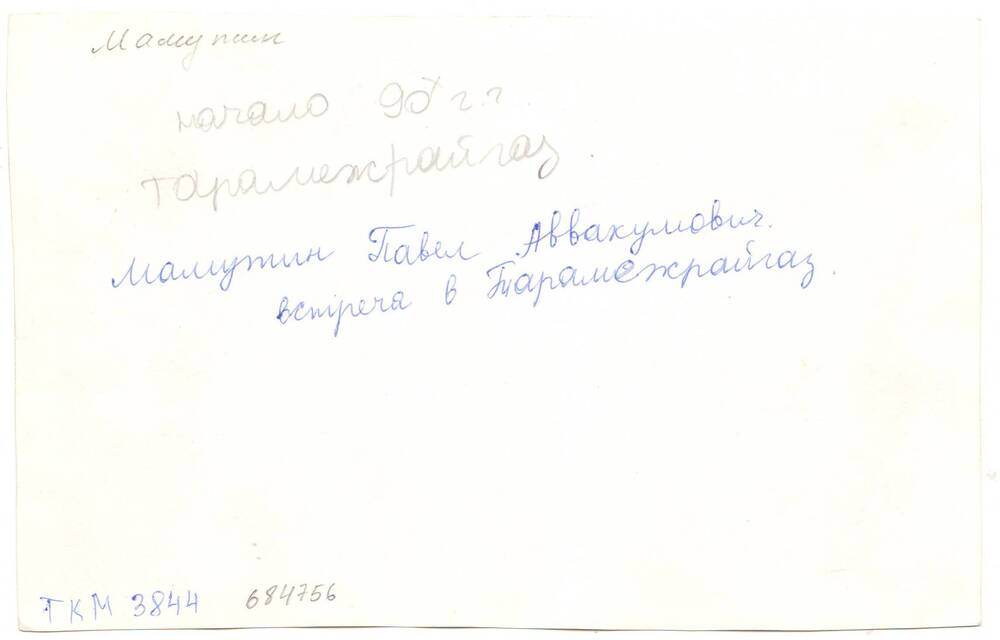 Мамутин
начало 90х г.г.
Тарамежрайгаз.
Мамутин Павел Аввакумович.
встреча в Тарамежрайгаз.
ТКМ 3844 684756